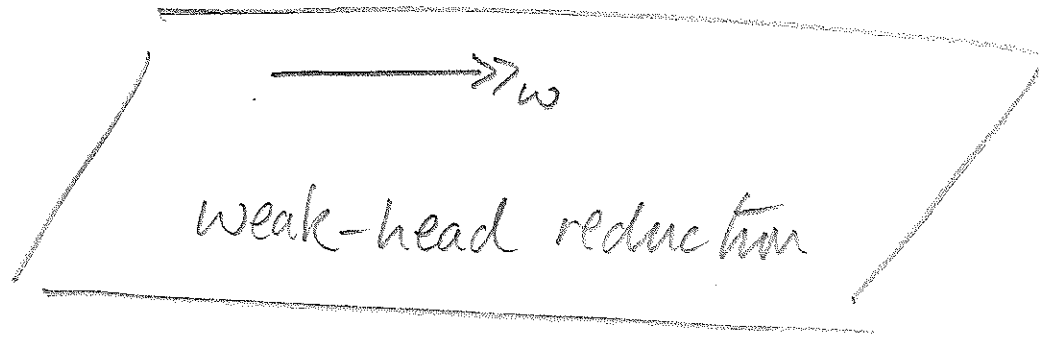 ↠w
weak-head reduction